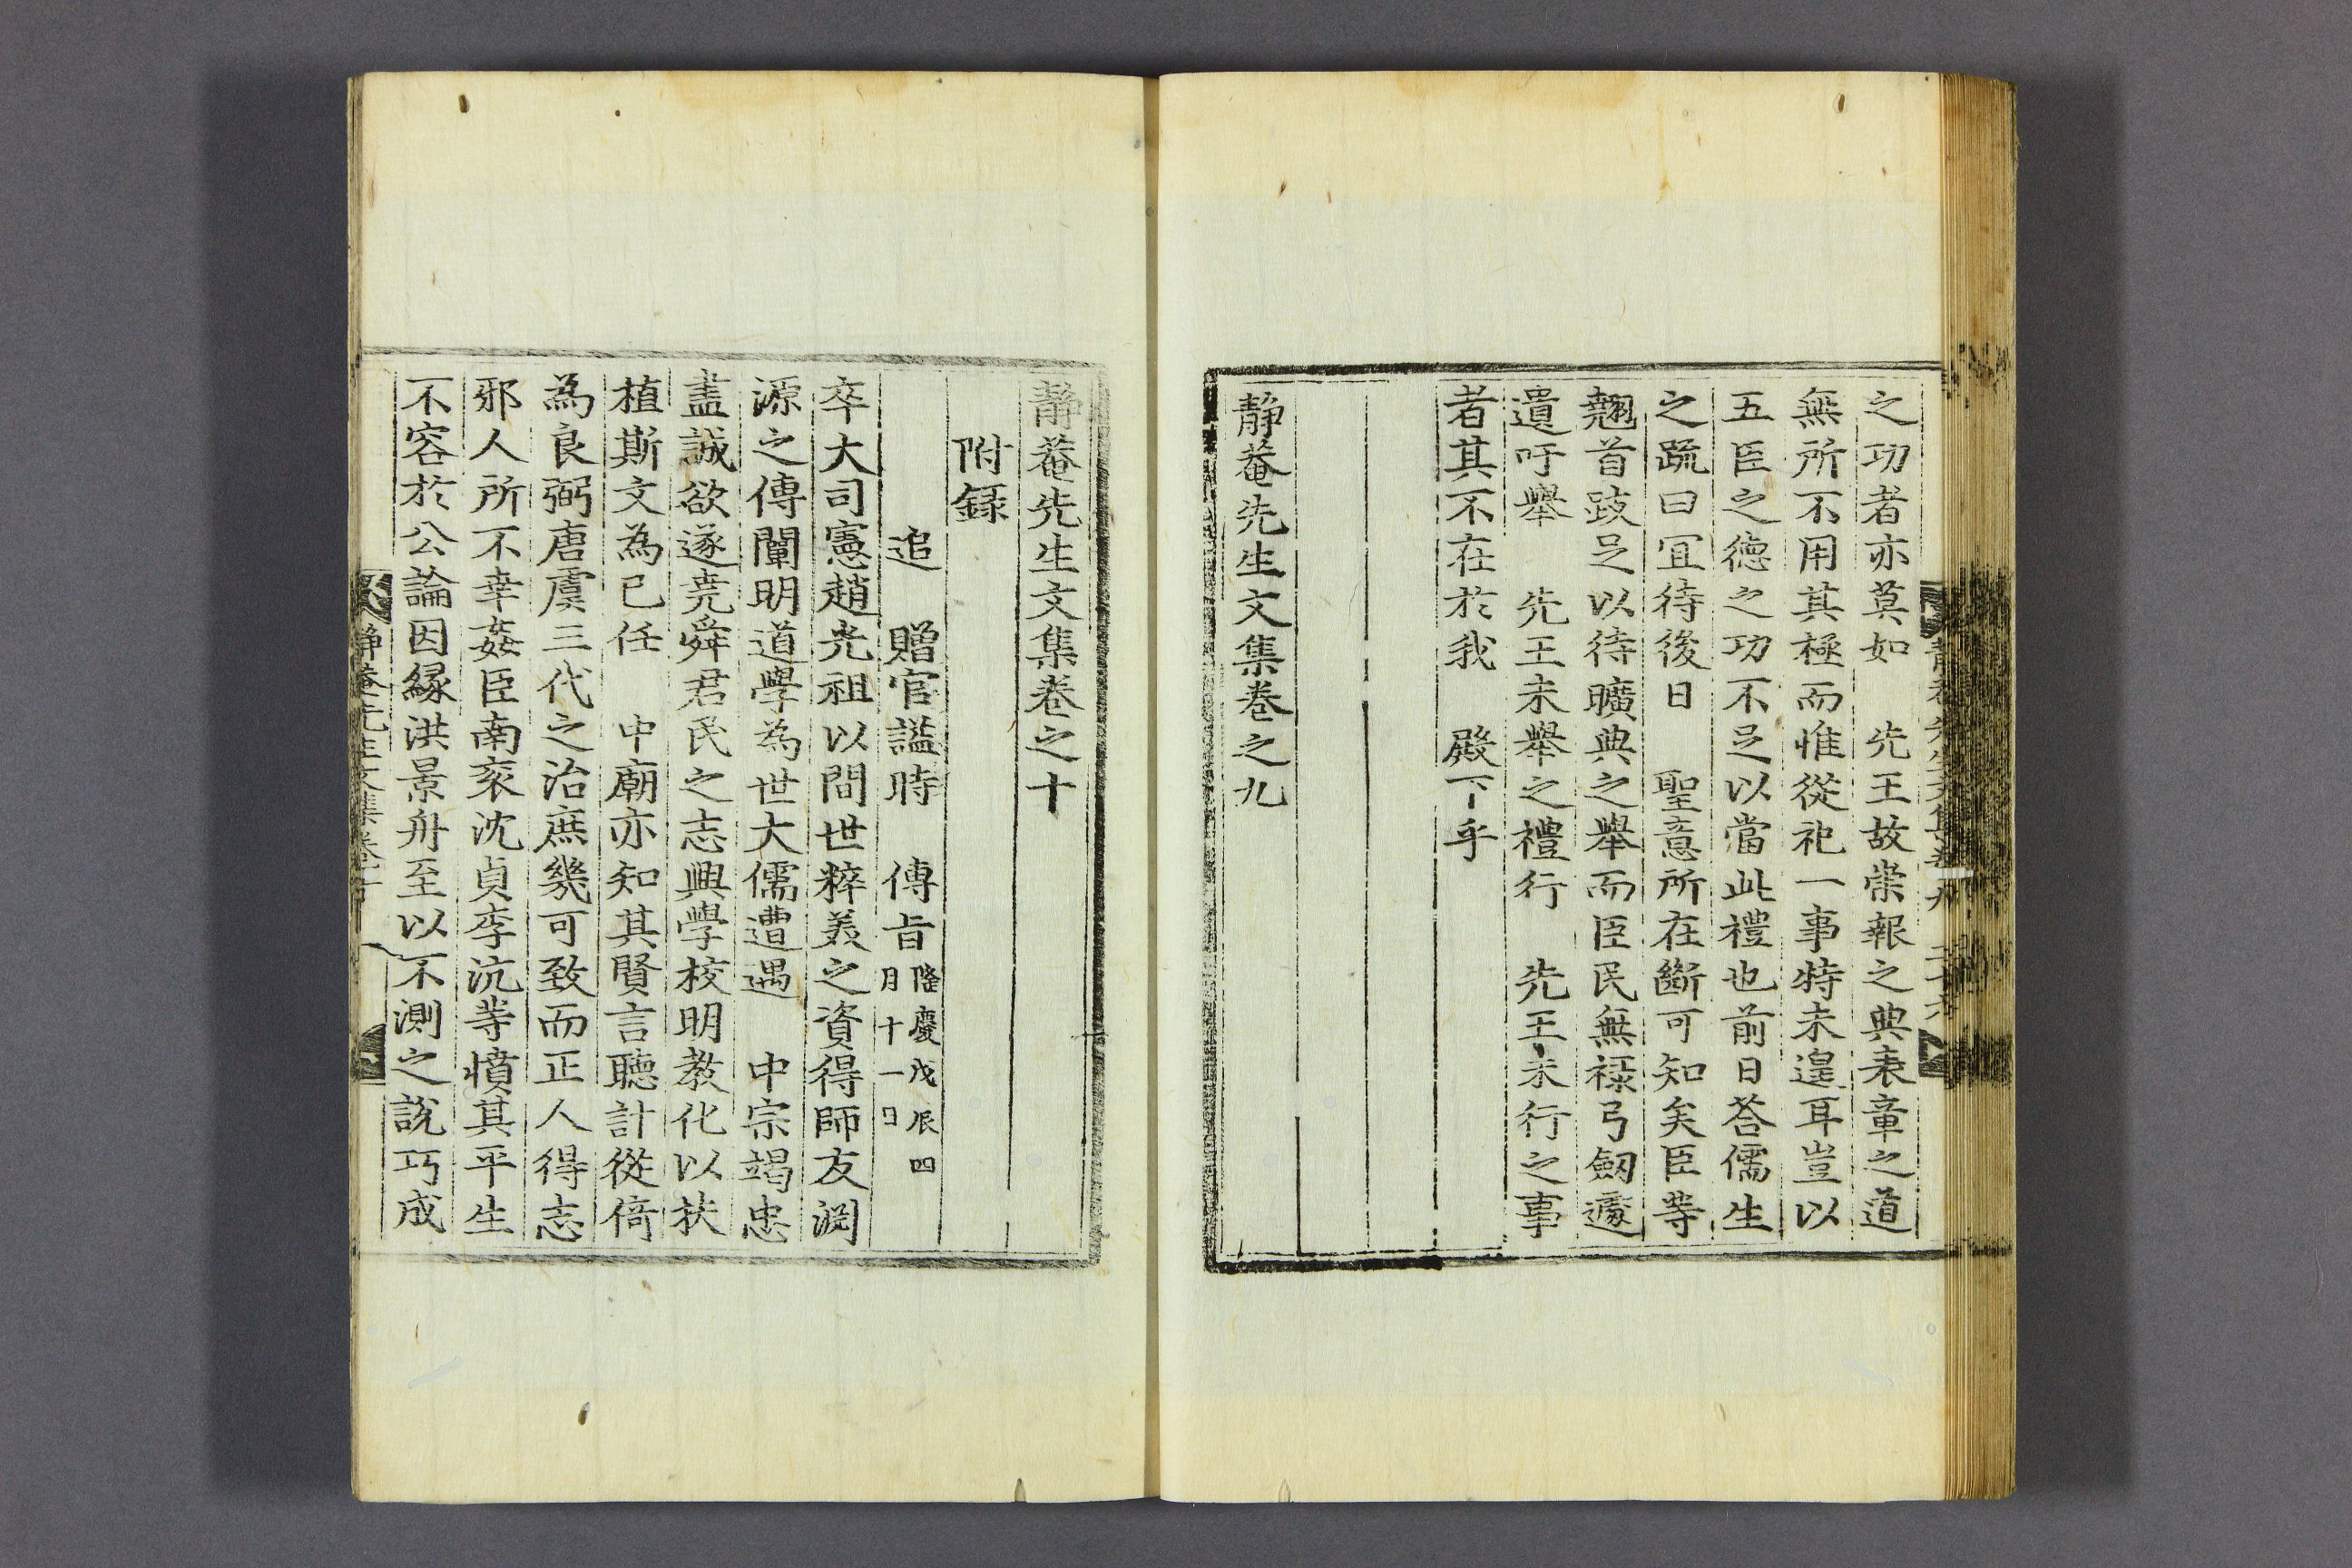 之功者亦莫如 先王故崇報之典表章之道
無所不用其極而惟從祀一事特未遑耳豈以
五臣之德之功不足以當此禮也前日荅儒生
之䟽曰宜待後日 聖意所在斷可知矣臣等
翹首跂足以待曠典之舉而臣民無祿弓劒遽
遺吁舉 先王未舉之禮行 先王未行之事
者其不在於我 殿下乎
靜菴先生文集卷之九
靜菴先生文集卷之十
附錄
追 贈官諡時 傳旨隆慶戊辰四月十一日
卒大司憲趙光祖以間世粹美之資得師友淵
源之傳闡明道學為世大儒遭遇 中宗竭忠
盡誠欲遂堯舜君民之志興學校明教化以扶
植斯文為已任 中廟亦知其賢言聽計從倚
為良弼唐虞三代之治庶幾可致而正人得志
邪人所不幸姦臣南衮沈貞李沆等憤其平生
不容於公論因緣洪景舟至以不測之說巧成
靜菴先生文集卷十